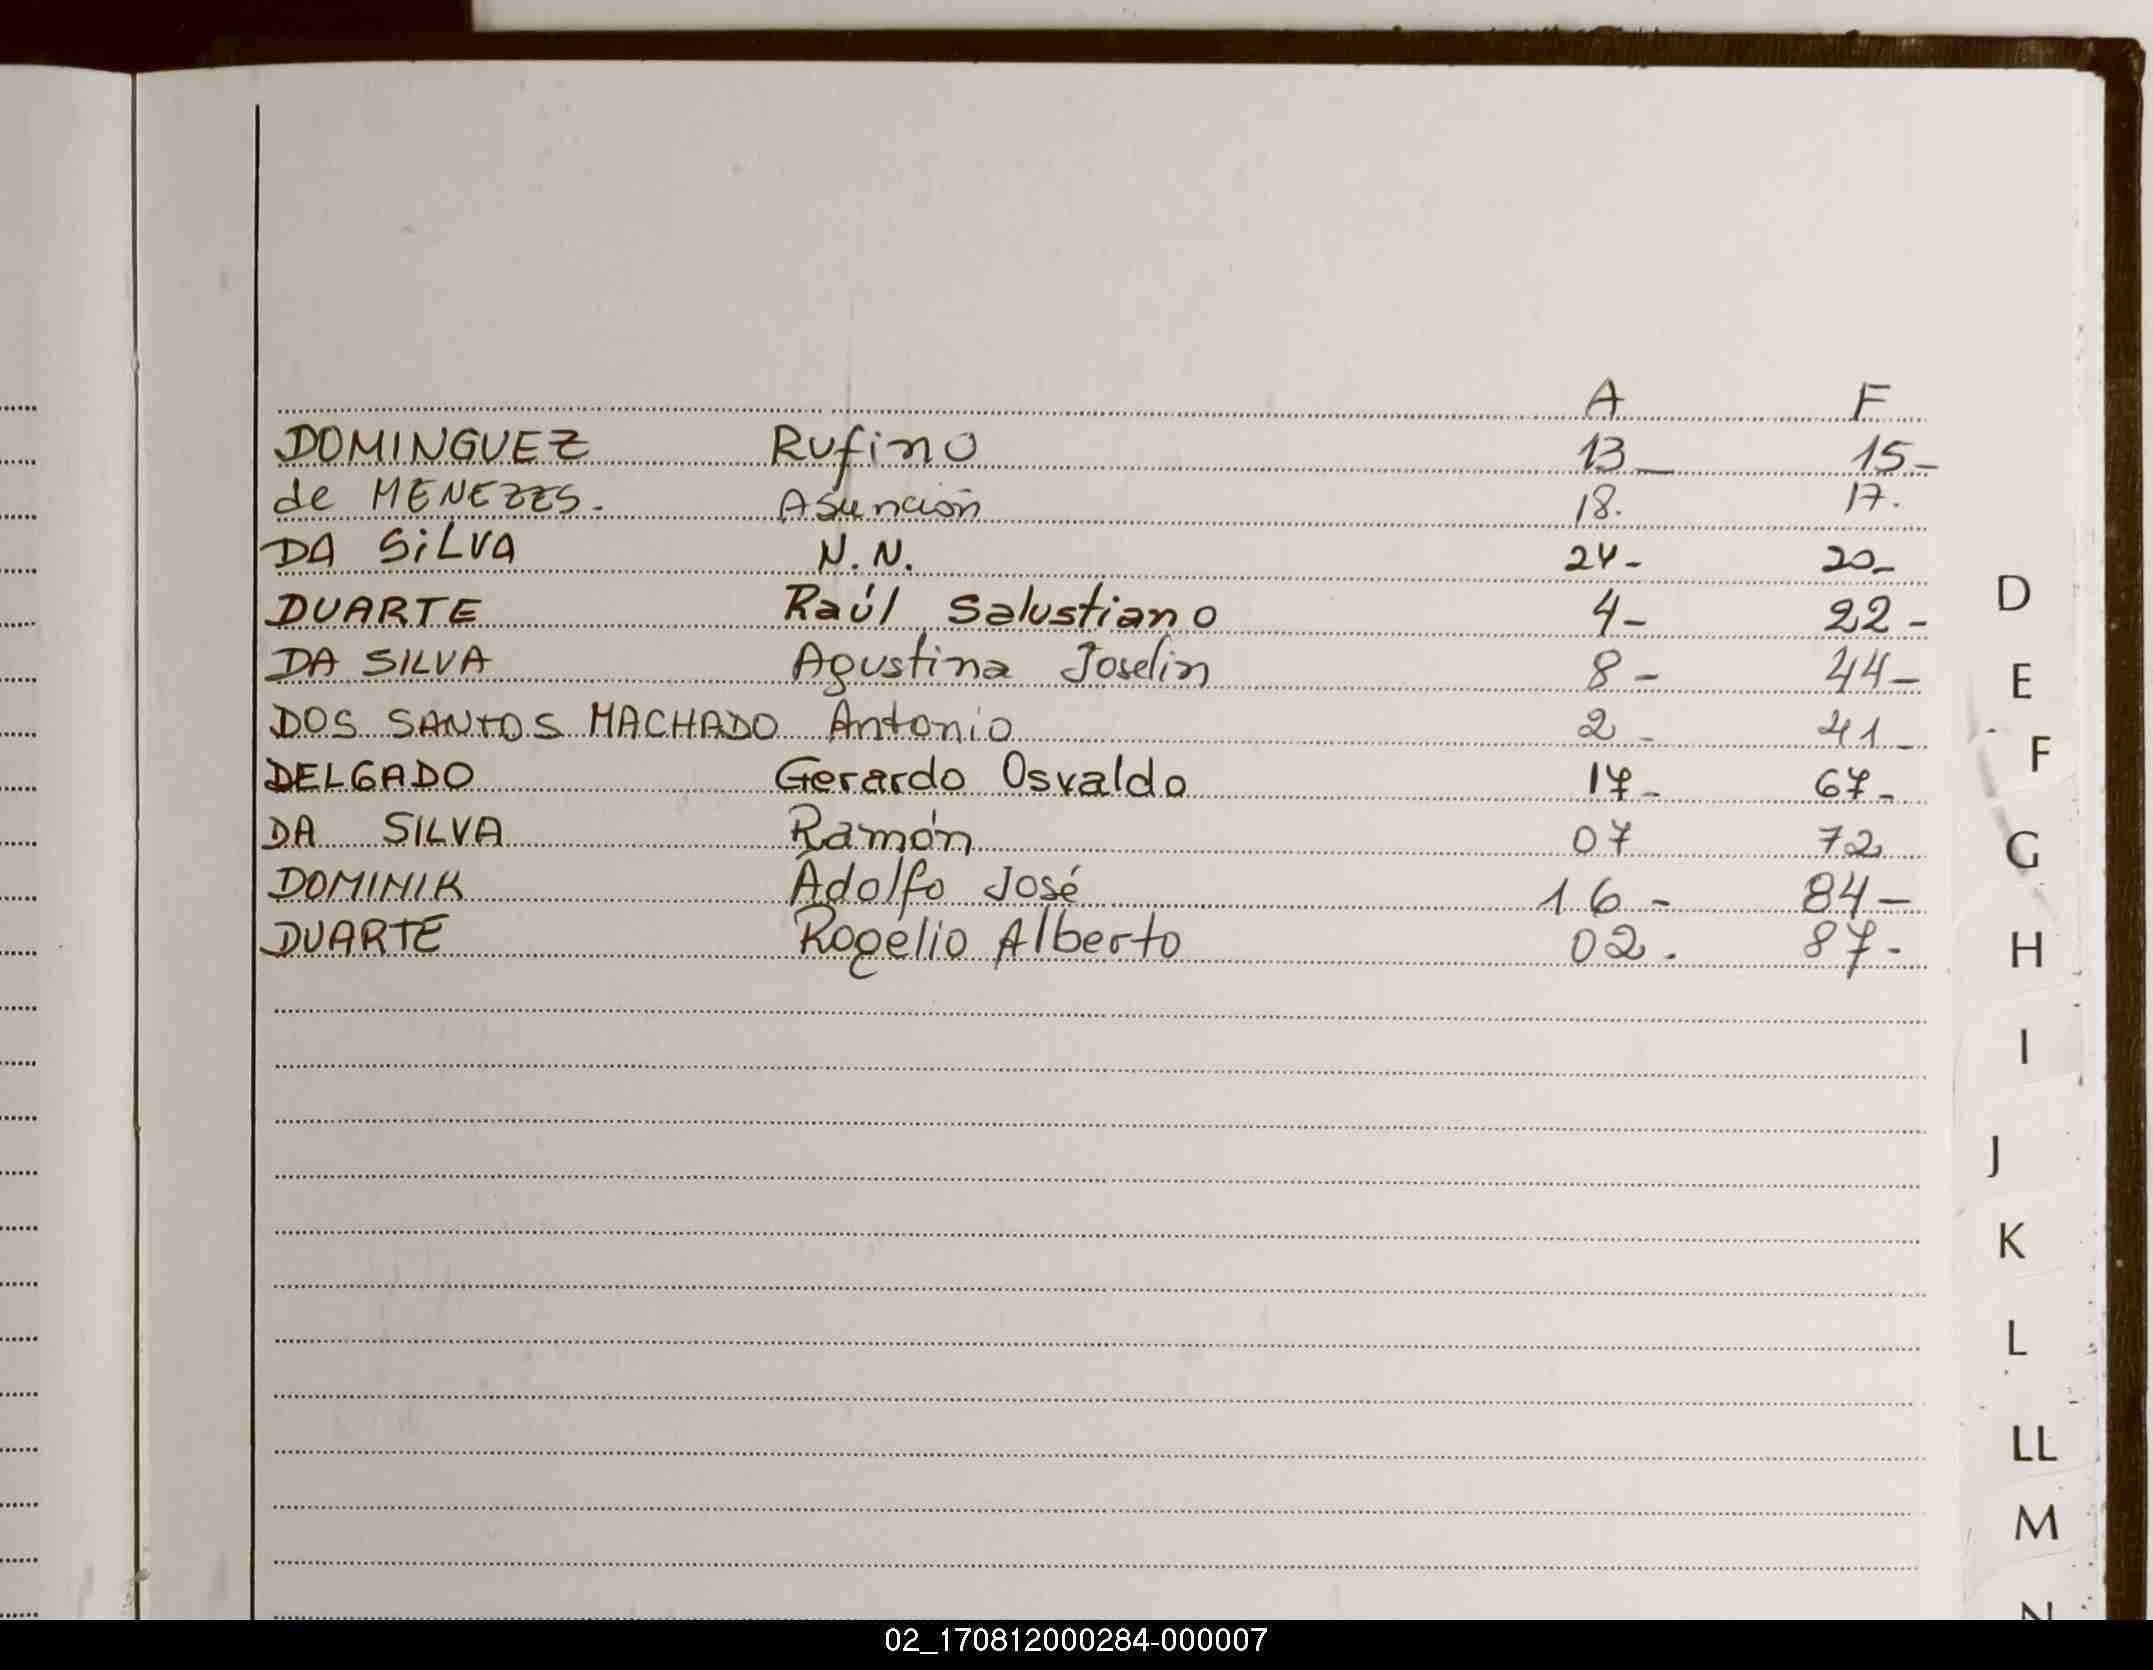 A F
DOMINGUEZ Rufino 13_ 15-
de MENEZES. Asunción 18. 17.
DA SiLVA N.N. 24- 20-
DUARTE Raúl Salustiano 4- 22-
DA SILVA Agustina Joselin 8- 44-
DOS SANTOS MACHADO Antonio 2- 41-
DELGADO Gerardo Osvaldo 17- 67-
DA SILVA Ramón 07 72
DOMINIK Adolfo José 16- 84-
DUARTE Rogelio Alberto 02. 87-
D
E
F
G
H
I
J
K
L
LL
M
N
02_170812000284-000007